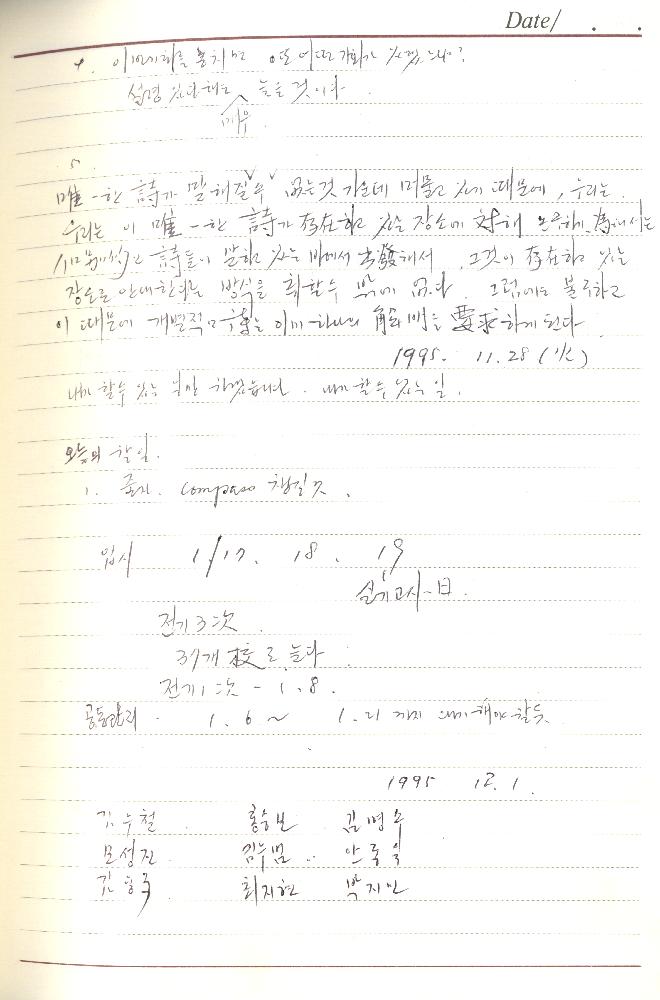 Date/ . .
4. 이 기회를 놓치면 또 어떤 기회가 있겠는가?
설령 있다해도 늦을 것이다.
매우
5.
唯一한 詩가 말해질 수 없는 것 가운데 머물고 있기 때문에, 우리는
우리는 이 唯一한 詩가 存在하고 있는 장소에 対해 논구하기 為해서는
詩들이 말하고 있는 바에서 出發해서 그것이 存在하고 있는
장소로 안내한다는 방식을 취할 수 밖에 없다. 그럼에도 불구하고
이 때문에 개별적인 詩는 이미 하나의 解明을 要求하게 된다.
1995. 11. 28 (火)
내가 할 수 있는 일만 하겠습니다. 내가 할 수 있는 일.
오늘의 할일.
1. 줄자. compass 챙길 것.
입시 1/17. 18. 19
실기고사日.
전기 3次
37개 校로 늘다
전기 1次 - 1.8.
공동관리 1. 6 ~ 1. 21 까지 해야 할 듯
1995 12. 1.
김수철 홍승보 김명수
모성진 김수범 안
김 최지현 박지민